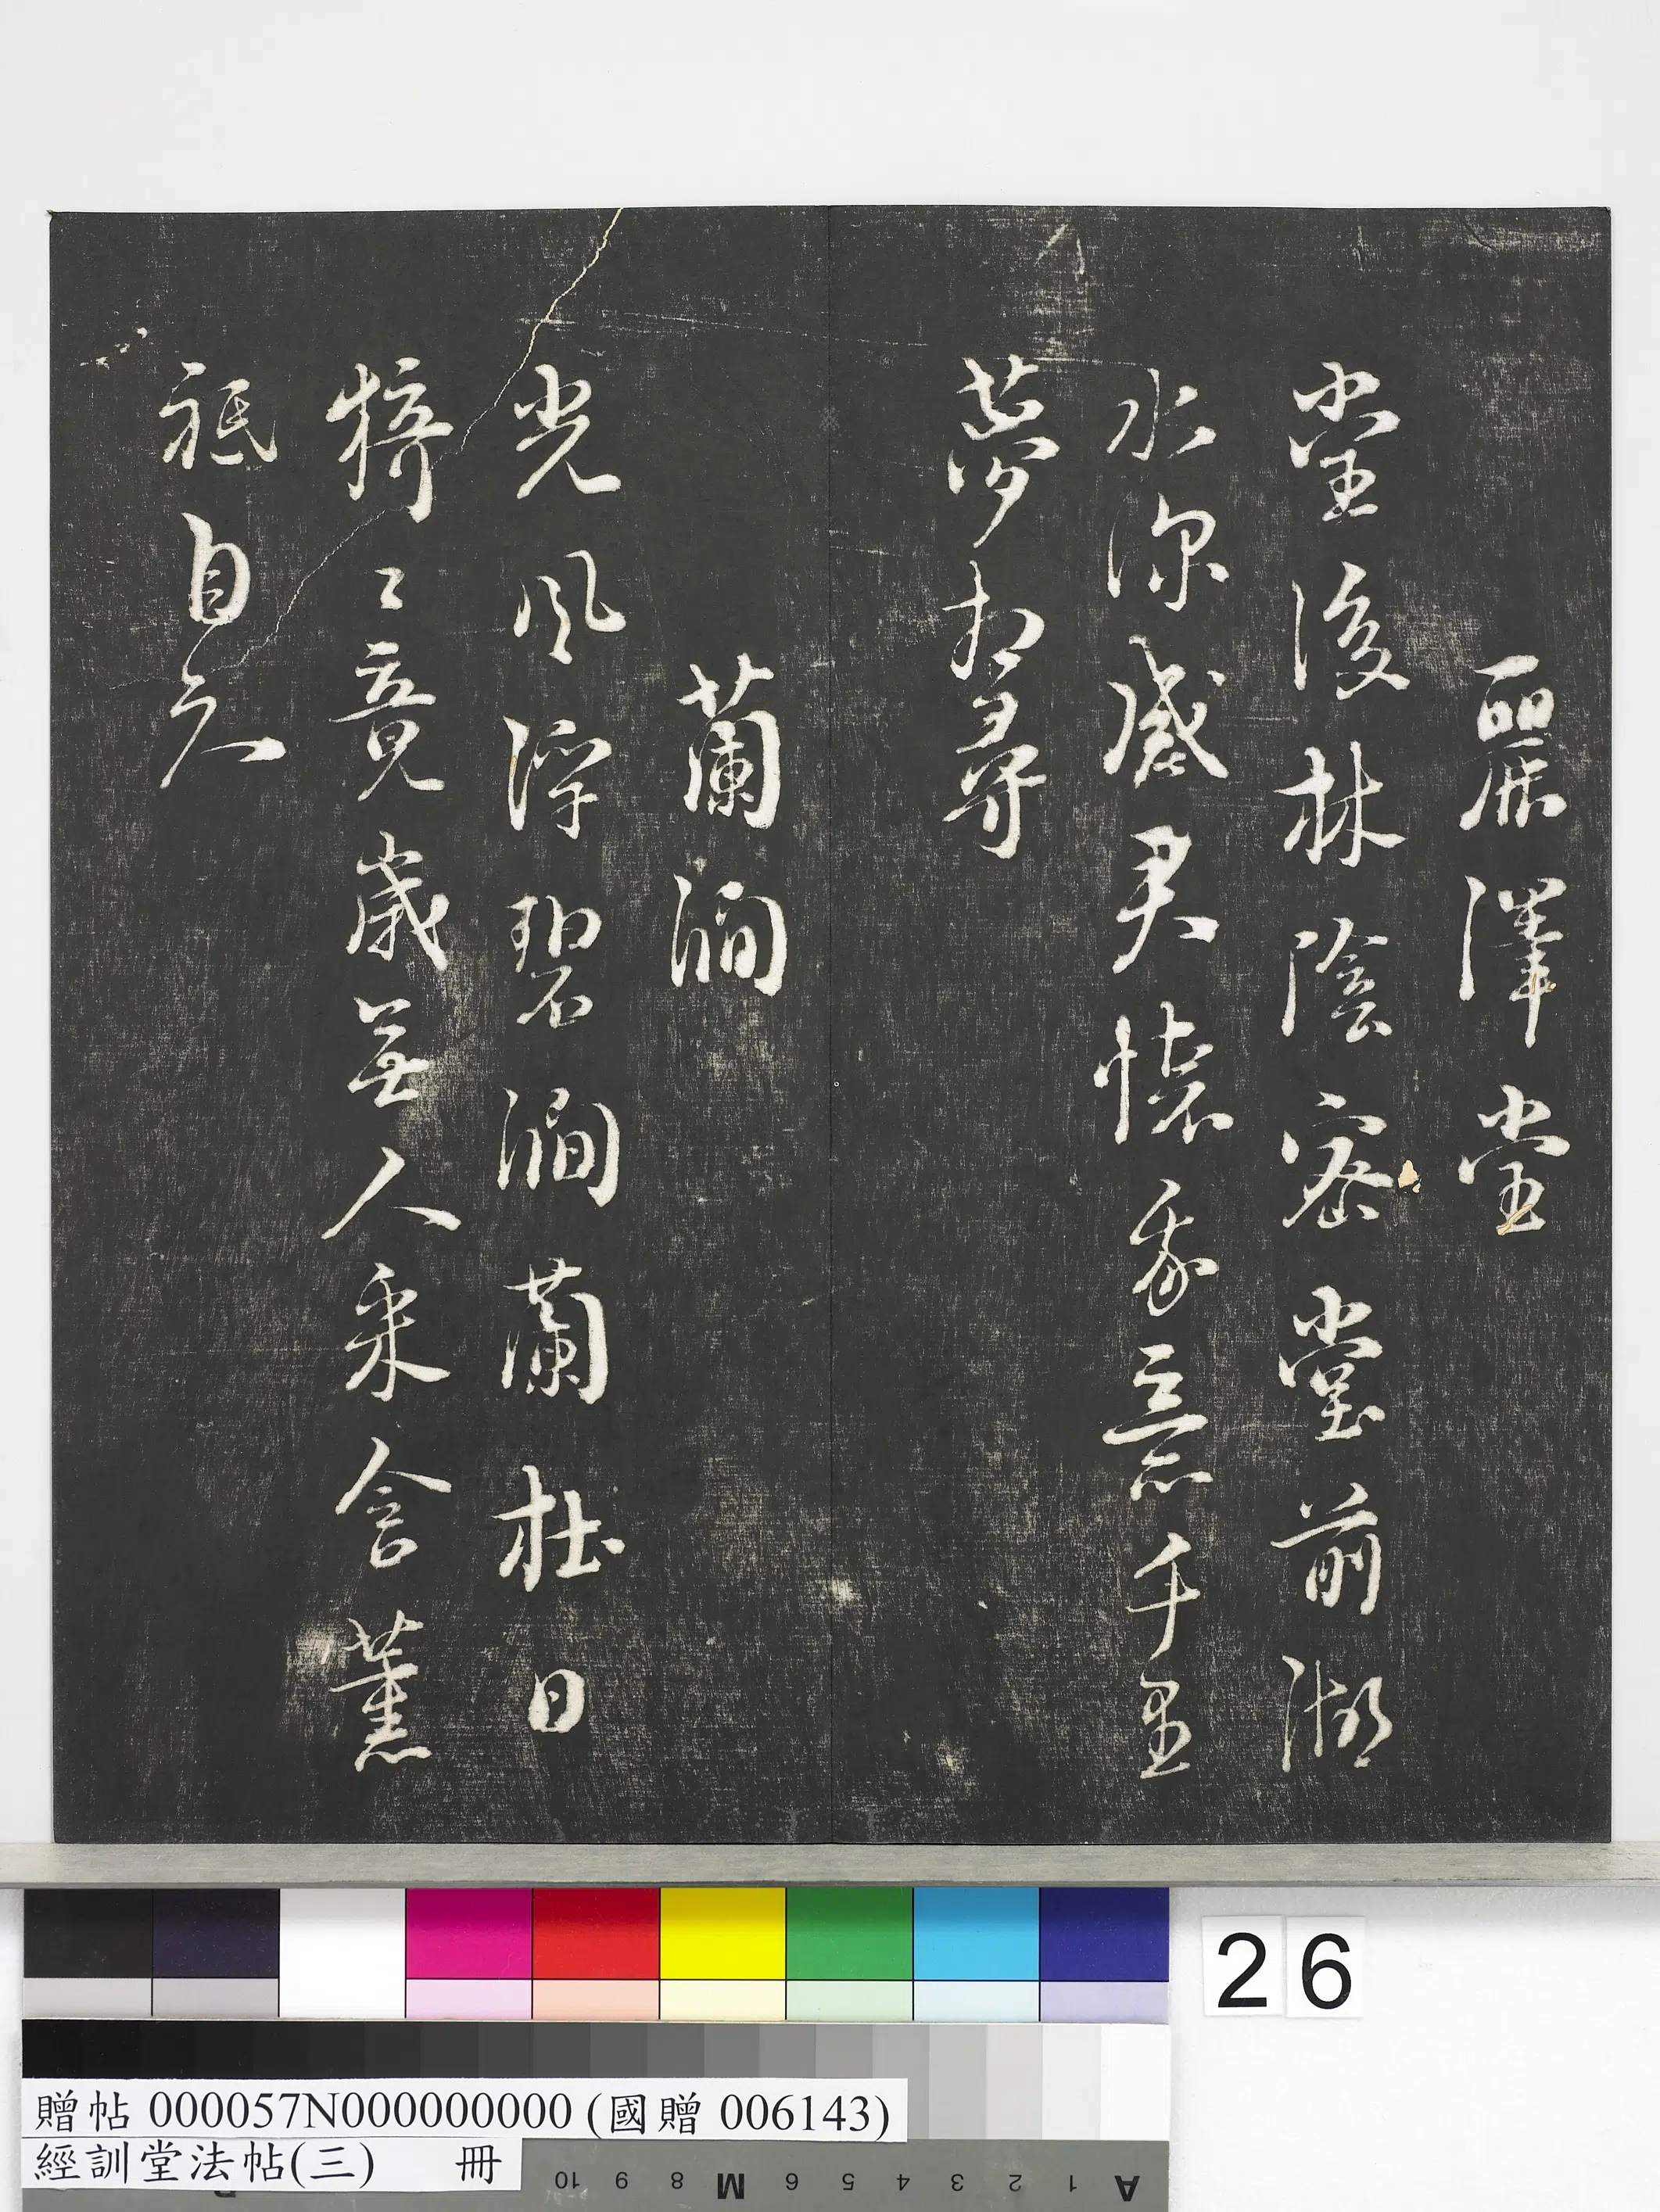 麗澤堂
堂後林陰密堂前湖
水深感君懷我意千里
夢相尋
蘭澗
光風浮碧澗蘭杜日
猗〻竟歲無人采含薰
祗自知
26
贈帖 000057N000000000 (國贈 006143)
經訓堂法帖(三) 冊
10 9 8 M 6 5 4 3 2 1 A